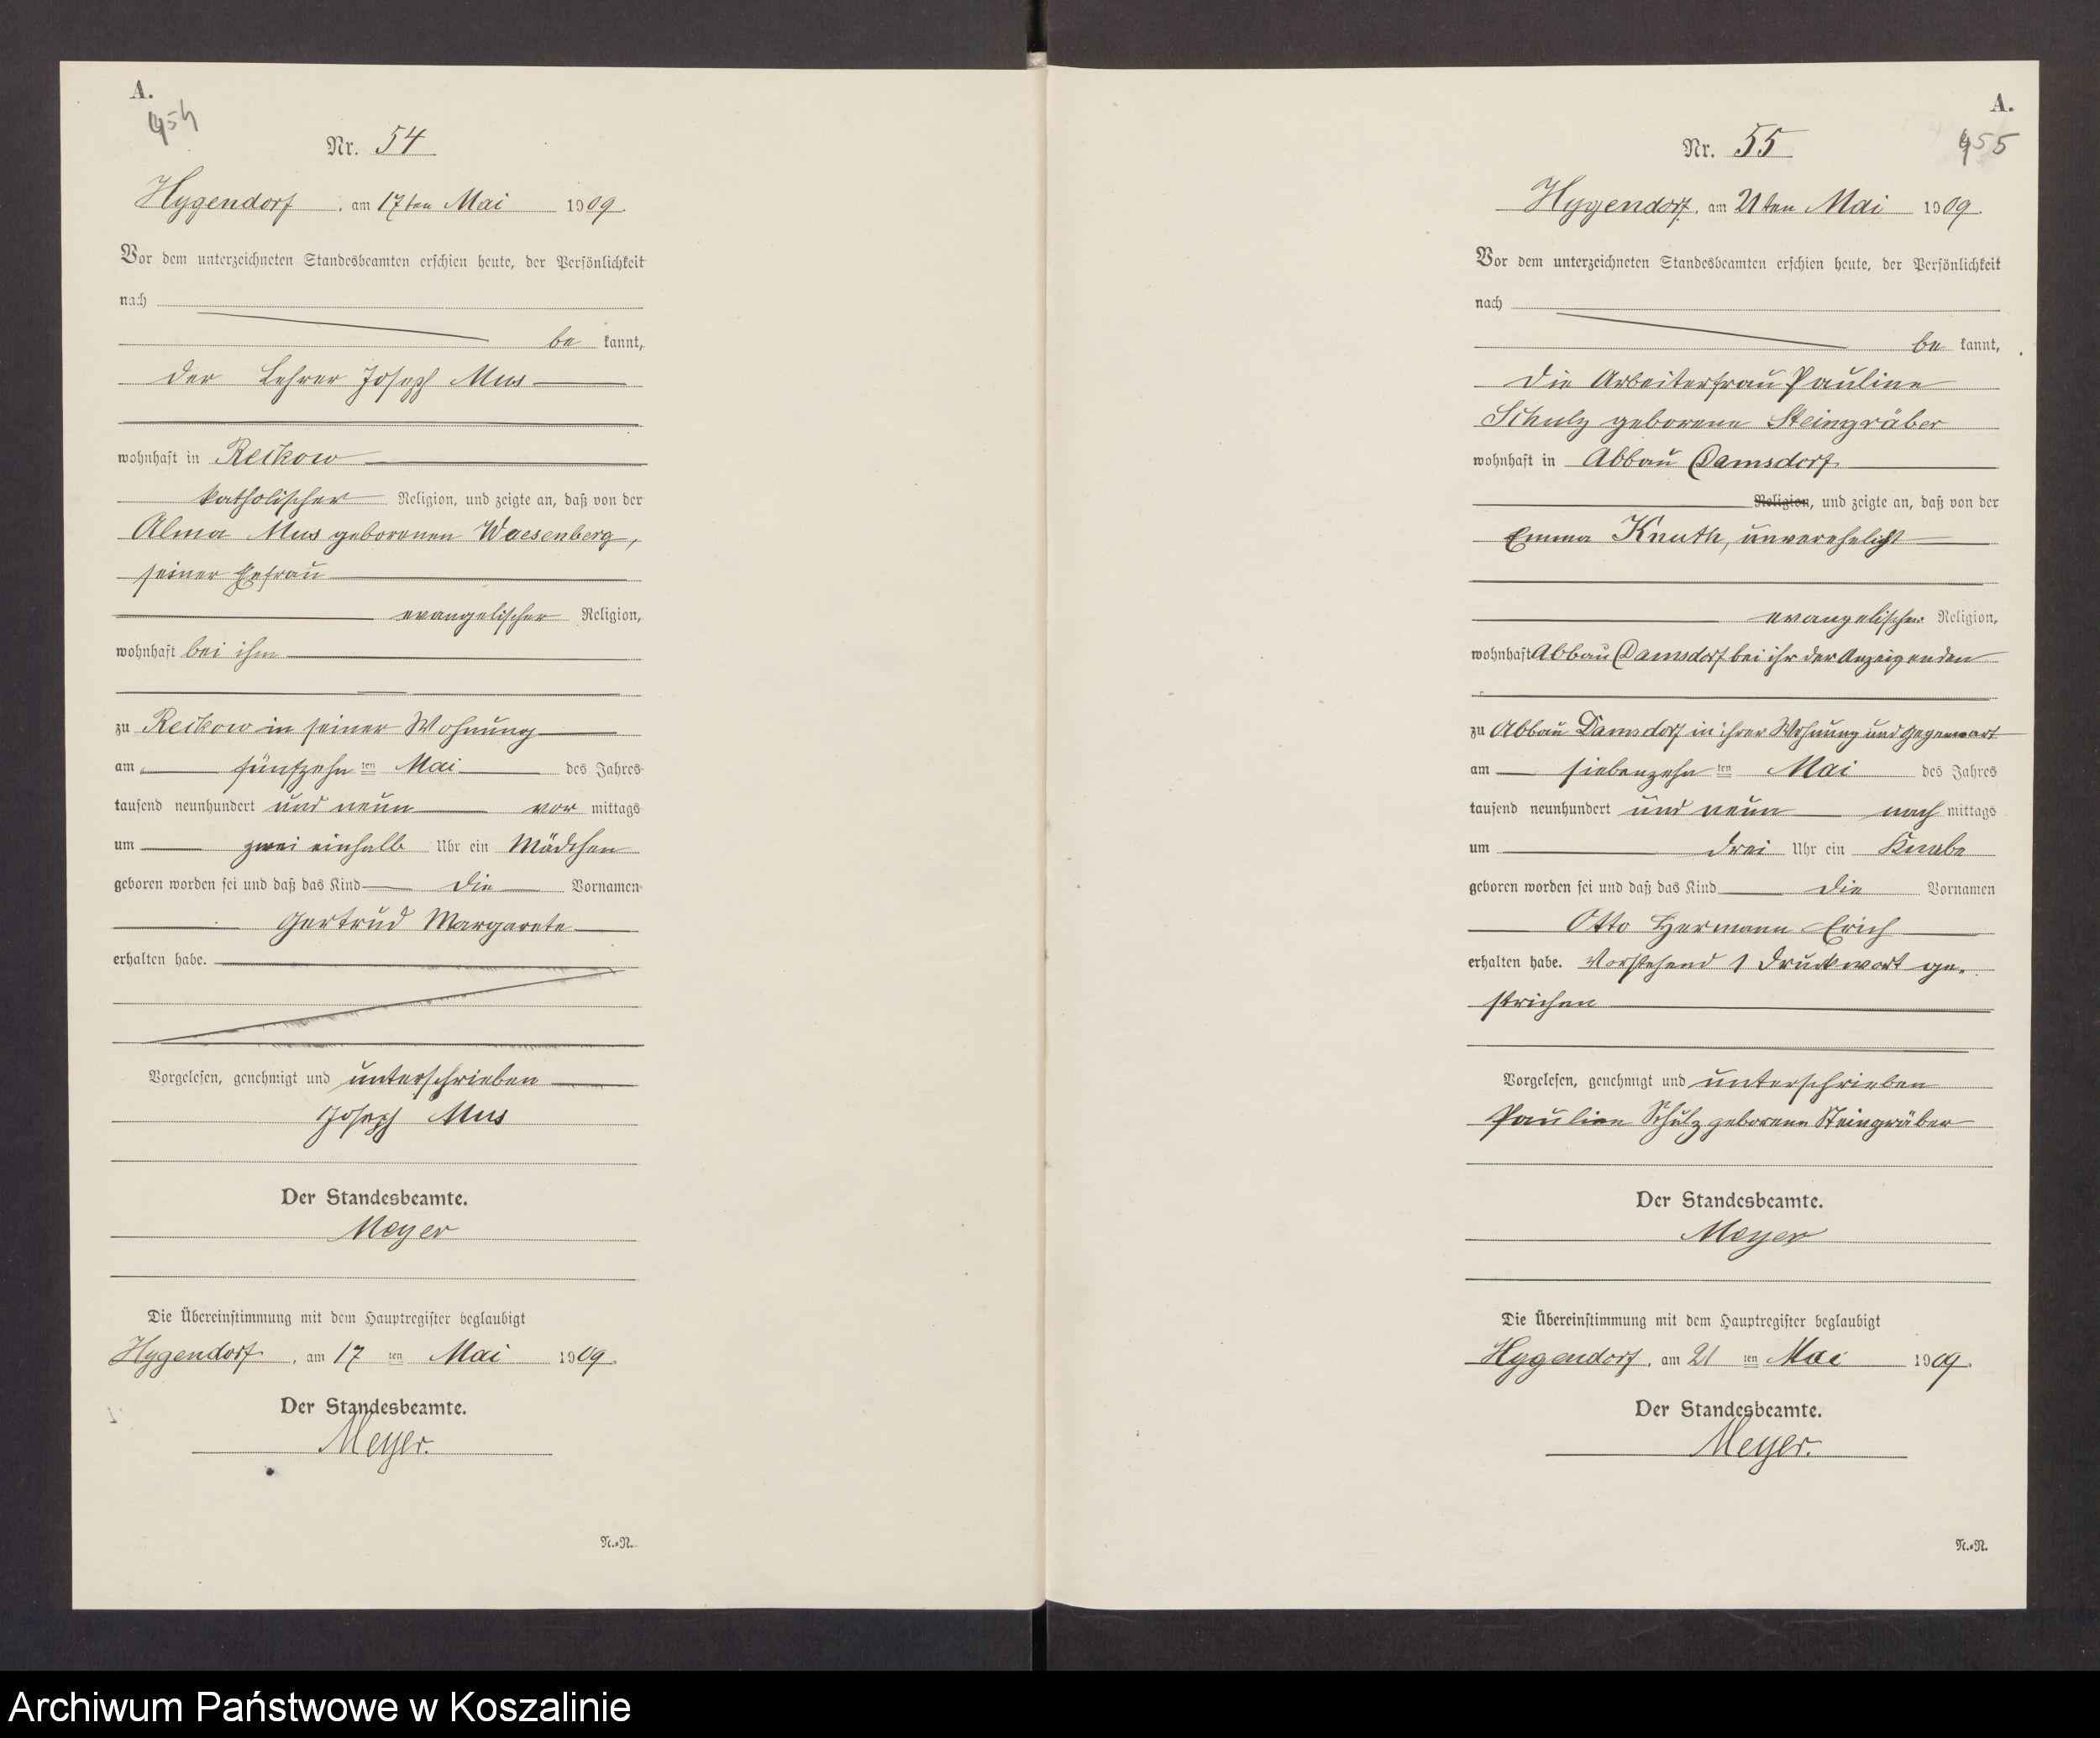 A.
54
Nr. 54
Hygendorf, am 17ten Mai 1909.
Vor dem unterzeichneten Standesbeamten erschien heute, der Persönlichkeit
nach
be kannt,
der Lehrer Joseph Mus
wohnhaft in Reikow
katholischer Religion, und zeigte an, daß von der
Alma Mus geborenen Waesenberg,
seiner Ehefrau
evangelischer Religion,
wohnhaft bei ihm
zu Reikow in seiner Wohnung
am fünfzehn ten Mai des Jahres
tausend neunhundert und neun vor mittags
um zwei einhalb Uhr ein Mädchen
geboren worden sei und daß das Kind die Vornamen
Gertrud Margarete
erhalten habe.
Vorgelesen, genehmigt und unterschrieben
Joseph Mus
Der Standesbeamte.
Meyer
Die Übereinstimmung mit dem Hauptregister beglaubigt
Hygendorf, am 17 ten Mai 1909.
Der Standesbeamte.
Meyer.
N.=N.
A.
55
Nr. 55
Hygendorf, am 21ten Mai 1909.
Vor dem unterzeichneten Standesbeamten erschien heute, der Persönlichkeit
nach
be kannt,
die Arbeiterfrau Pauline
Schulz geborene Steingräber
wohnhaft in Abbau Damsdorf
Religion, und zeigte an, daß von der
Emma Knuth, unverehelicht
evangelischer Religion,
wohnhaft Abbau Damsdorf bei ihr der Anzeigenden
zu Abbau Damsdorf in ihrer Wohnung und Gegenwart
am siebenzehn ten Mai des Jahres
tausend neunhundert und neun nach mittags
um drei Uhr ein Knabe
geboren worden sei und daß das Kind die Vornamen
Otto Hermann Erich
erhalten habe. Vorstehend 1 Druckwort ge-
strichen
Vorgelesen, genehmigt und unterschrieben
Pauline Schulz geborene Steingräber
Der Standesbeamte.
Meyer
Die Übereinstimmung mit dem Hauptregister beglaubigt
Hygendorf, am 21 ten Mai 1909.
Der Standesbeamte.
Meyer.
N.=N.
Archiwum Państwowe w Koszalinie